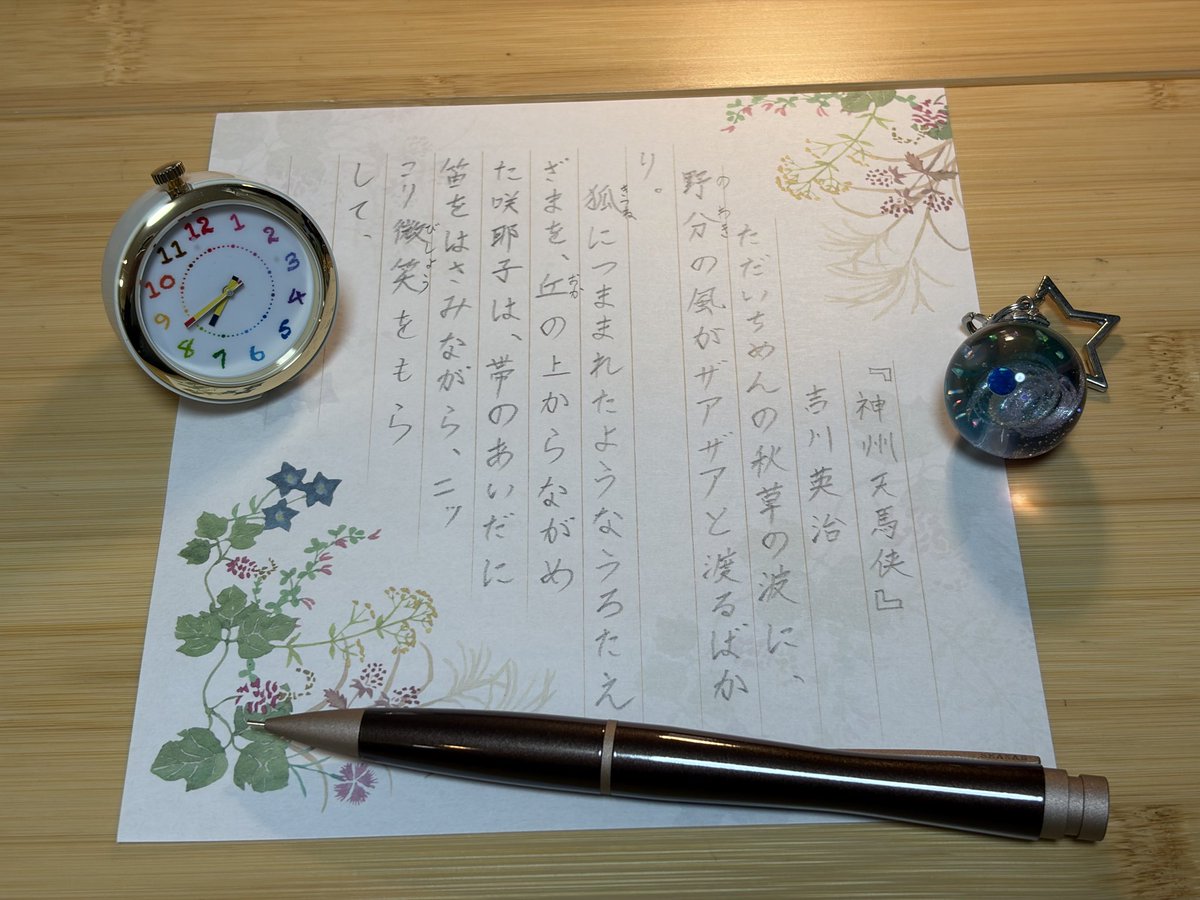 『神州天馬侠』
吉川英治
ただいちめんの秋草の波に、
野分の風がザアザアと渡るばか
のわき
り。
狐につままれたようなうろたえ
きつね
ざまを、丘の上からながめ
おか
た咲耶子は、帯のあいだに
笛をはさみながら、ニッ
コリ微笑をもら
びしょう
して、
12
1
2
3
4
5
6
7
8
9
10
11